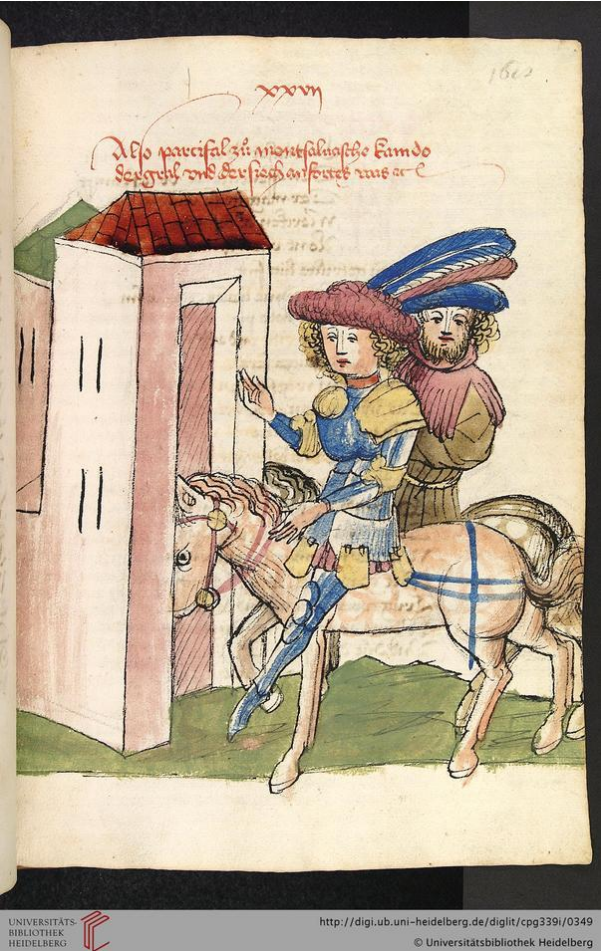 xxvii
Also parcifal zů montsaluasche kam do
der gral vnd der siech anfortes was
UNIVERSITÄTS-
BIBLIOTHEK
HEIDELBERG
http://digi.ub.uni-heidelberg.de/diglit/cpg339i/0349
© Universitätsbibliothek Heidelberg